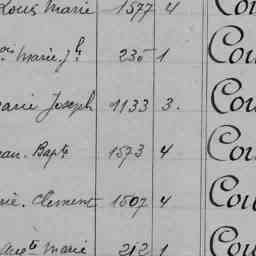 Louis Marie 1577 4 Cou
ois Marie Jh 235 1 Cou
arie Joseph 1133 3. Cou
ean. Bapte 1573 4 Cou
rie. Clement 1507 4 Cou
Marie 212 1 Cou